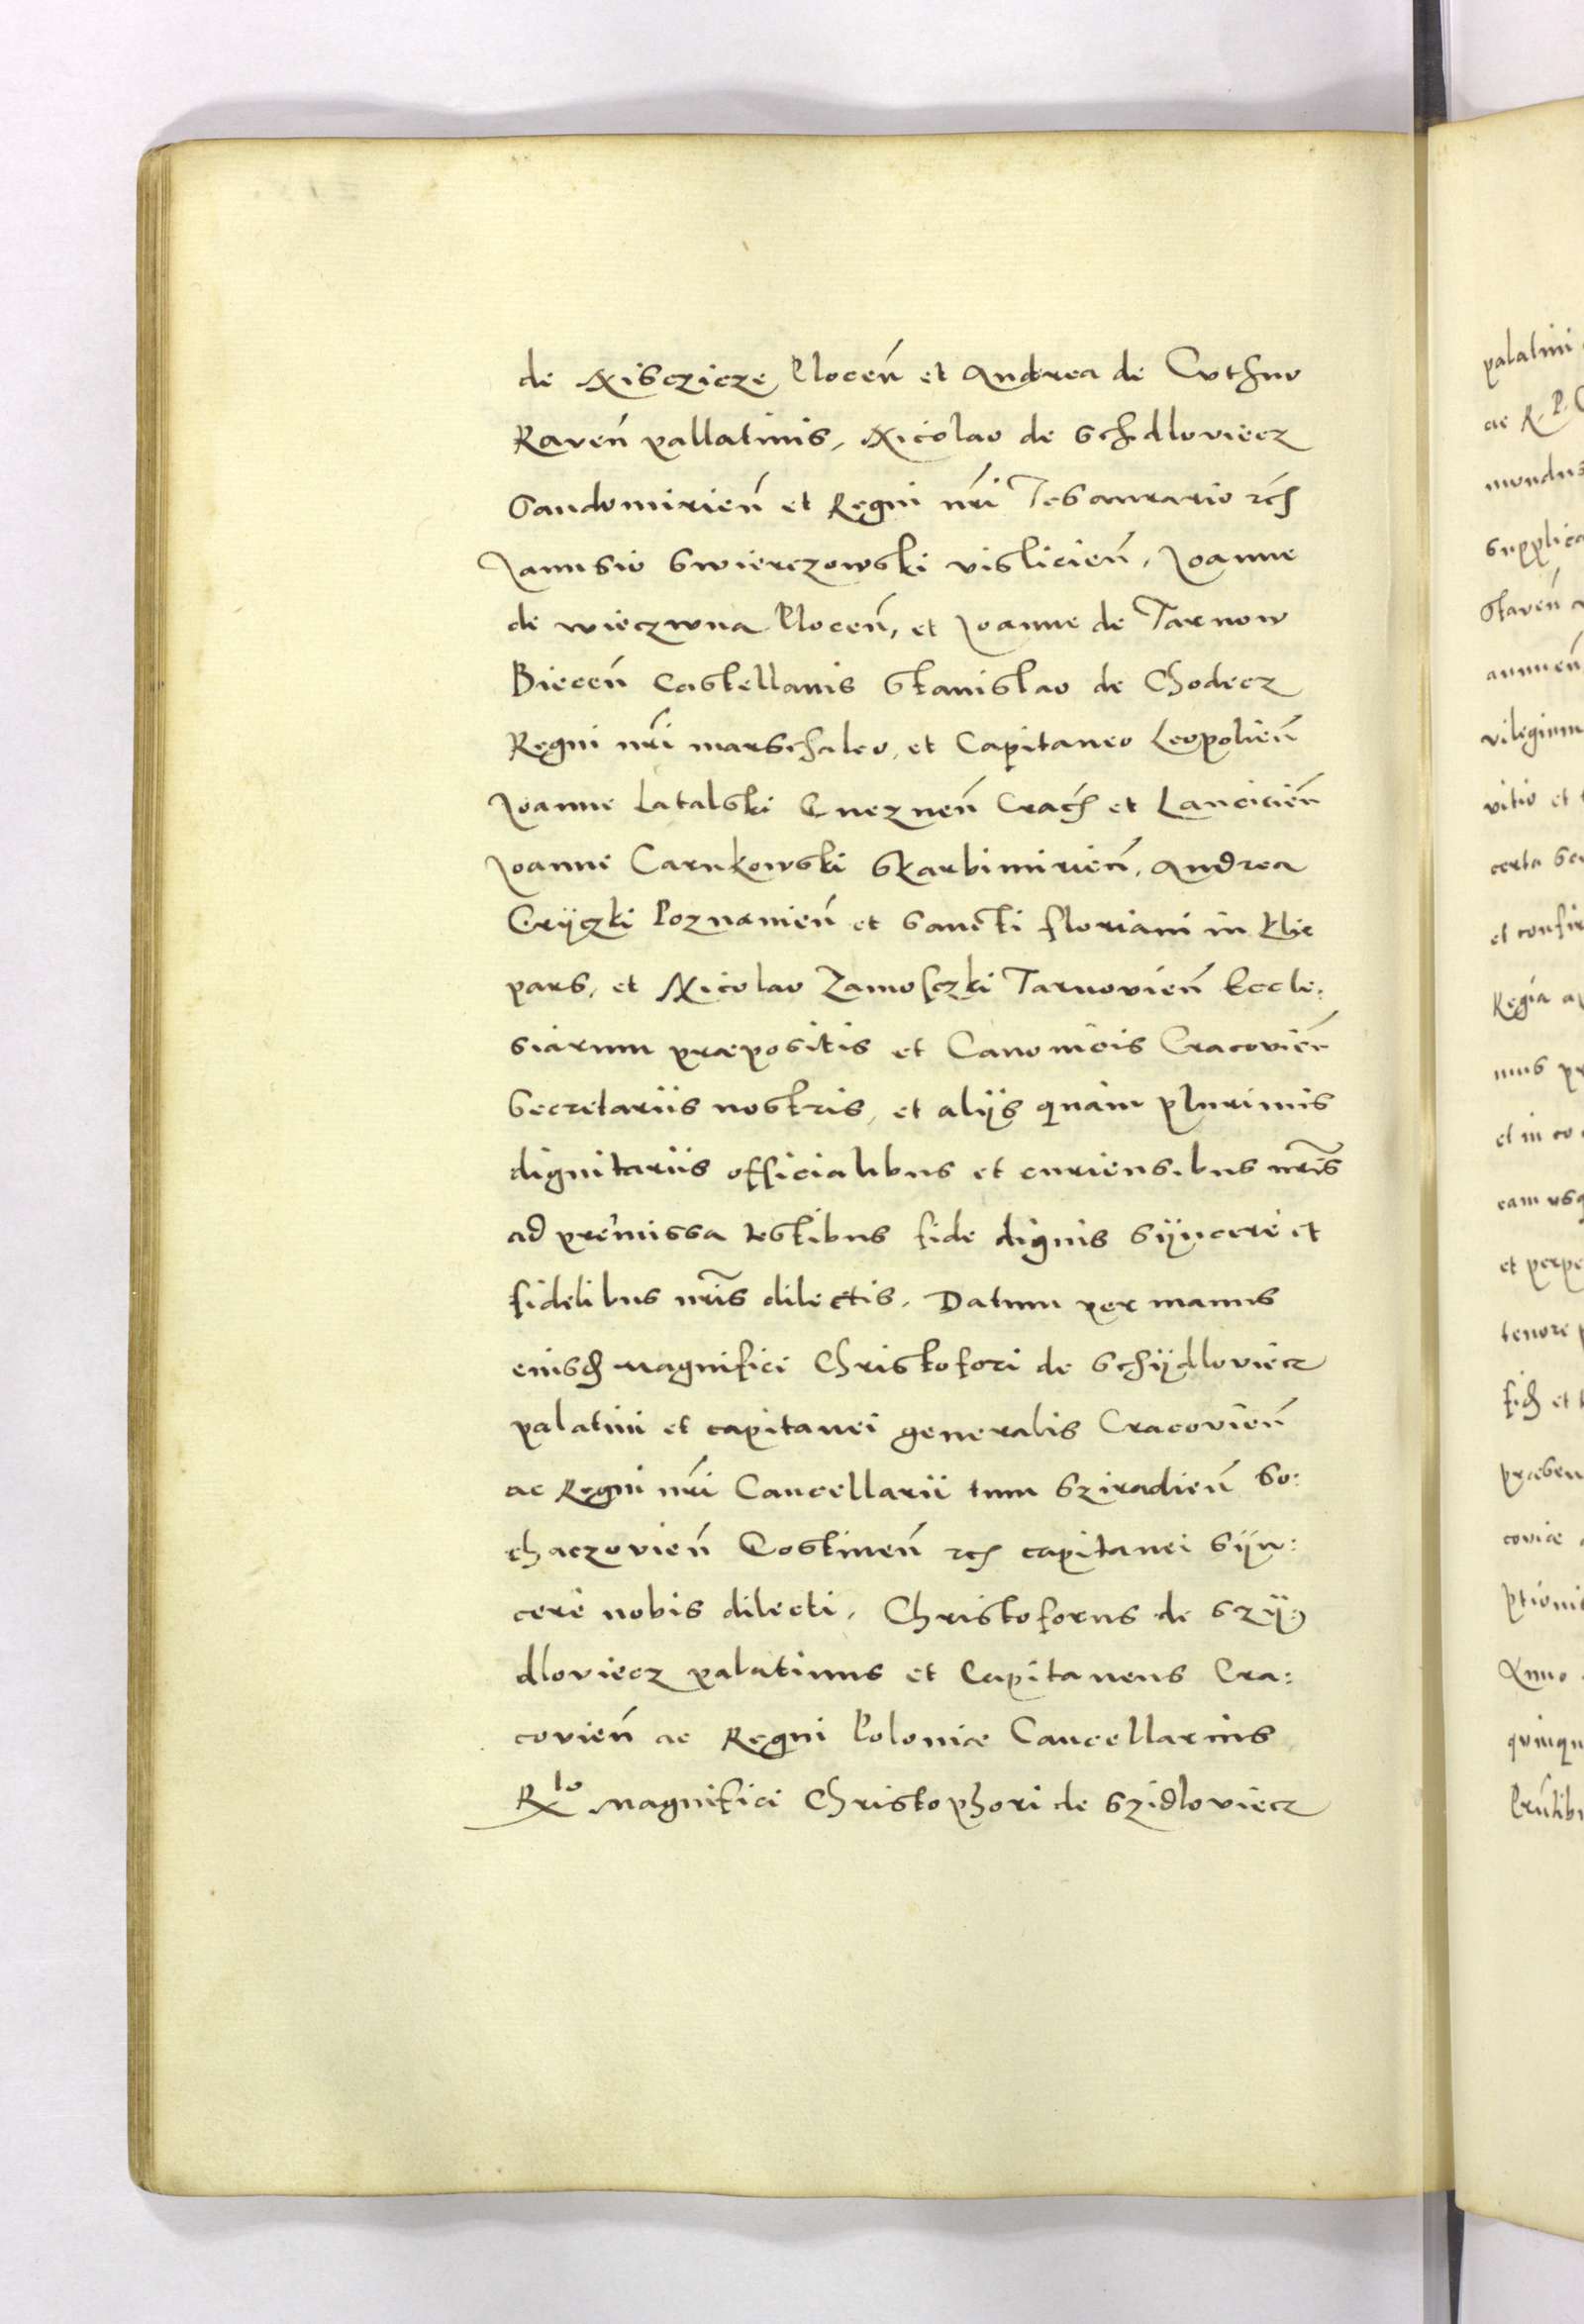 de Nisczicze Plocen̄ et Andrea de Cuthno
Raven̄ pallatinis, Nicolao de Schdloviecz
Sandomirien̄ et Regni nr̄i Tesaurario etc
Janusio Swierczowski vislicien̄, Joanne
de wieczwna Plocen̄, et Joanne de Tarnow
Biecen̄ castellanis Stanislao de Chodecz
Regni nr̄i marschalco, et Capitaneo Leopolien̄
Joanne Latalski Gneznen̄ Crac̄ et Lancicien̄
Joanne Carnkowski Skarbimirien̄, Andrea
Crÿczki Poznanien̄ et Sancti floriani in Klie
pars, et Nicolao Zamosczki Tarnovien̄ Eccle:
siarum præpositis et Canonicis Cracovien̄
Secretariis nostris, et alÿs quàm plurimis
dignitariis officialibus et curiensibus nr̄is
ad premissa testibus fide dignis sÿncere et
fidelibus nr̄is dilectis. Datum per manus
eiusd magnifici Christofori de Schÿdloviecz
palatini et capitanei generalis Cracovien̄
ac Regni nr̄i Cancellarii tum Sziradien̄ So:
chaczovien̄ Gostinen̄ etc capitanei sÿn:
cere nobis dilecti. Christoforus de Szÿ:
dloviecz palatinus et Capitaneus Cra:
covien̄ ac Regni Poloniæ Cancellarius
Rlo Magnifici Christophori de Szidloviecz
palatini
ac R. P.
mondus
supplica
Staven̄
annuen̄
vilegium
vitio et
certa
et confir
Regia
mus
et in eo
eam usq
et perpe
tenore
fid et
præsen
coviæ
ptionis
Anno
quinqu